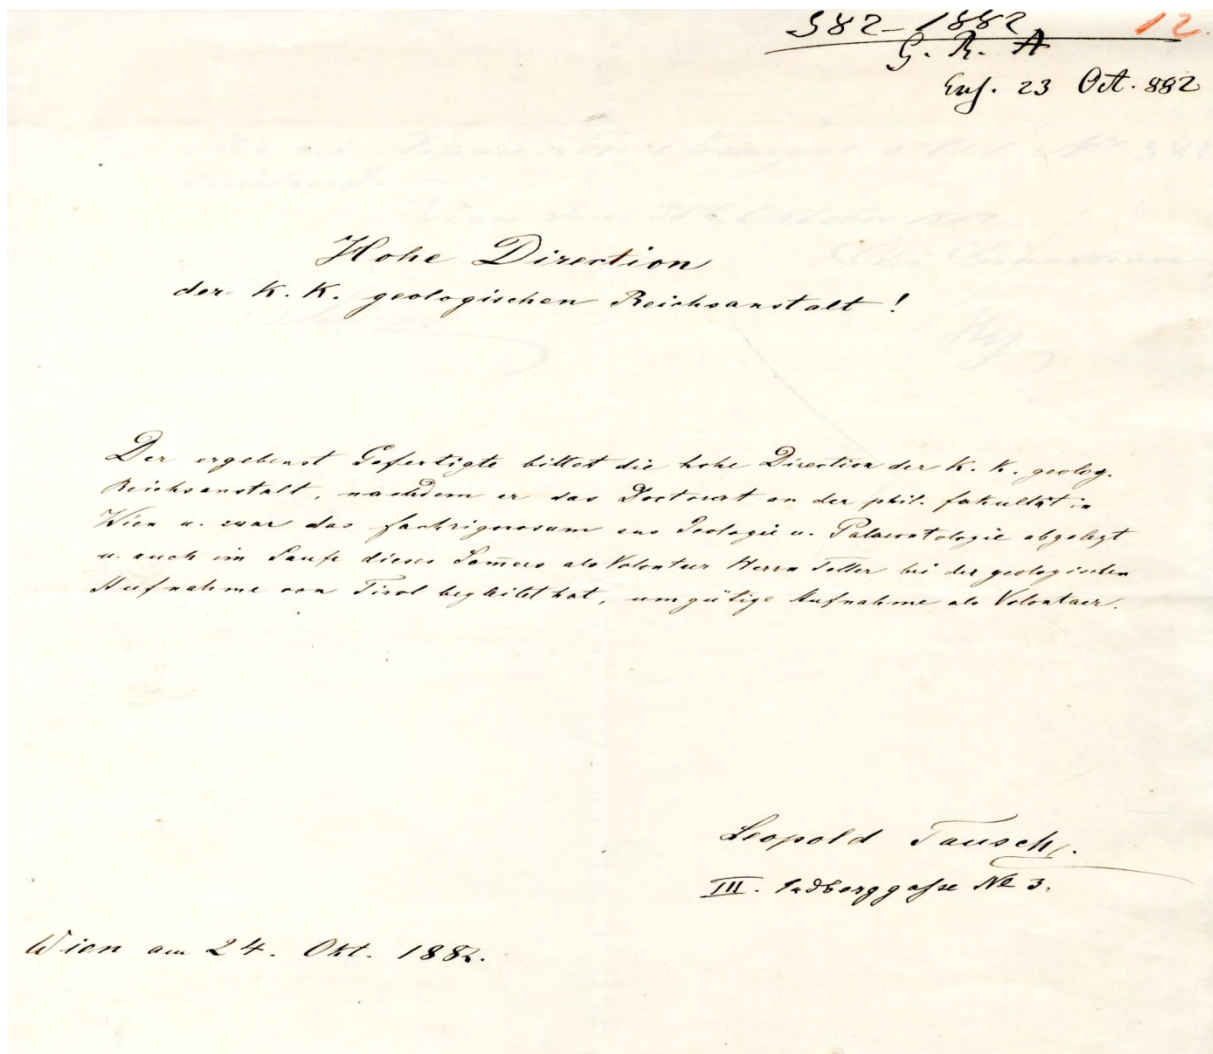 582–1882 12.
G. R. A
Erh. 23 Oct. 882
Hohe Direction
der K. K. geologischen Reichsanstalt!
Der ergebenst Gefertigte bittet die hohe Direction der K. K. geolog.
Reichsanstalt, nachdem er das Doctorat an der phil. Fakultät in
Wien u. zwar das Fachrigorosum aus Geologie u. Palaeontologie abgelegt
u. auch im Laufe dieses Som̅ers als Volontär Herrn Teller bei der geologischen
Aufnahme von Tirol begleitet hat, um gütige Aufnahme als Volontaer.
Leopold Tausch.
III. Erdberggasse № 3.
Wien am 24. Okt. 1882.